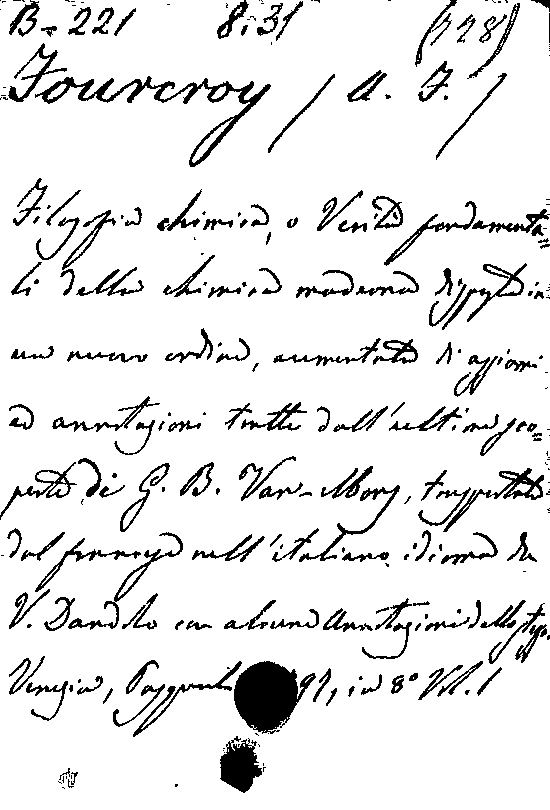 B-221 8.31 (728)
Fourcroy (A. F.)
Filosofia chimica, o Verità fondamenta=
li della chimica moderna disposte in
un nuovo ordine, aumentate di assiomi
ed annotazioni tratte dall'ultime sco=
perte di G. B. Van-Mons, trasportate
dal francese nell'italiano idioma da
V. Dandolo con alcune Annotazioni dello stesso.
Venezia, 97, in 8° Vol. 1